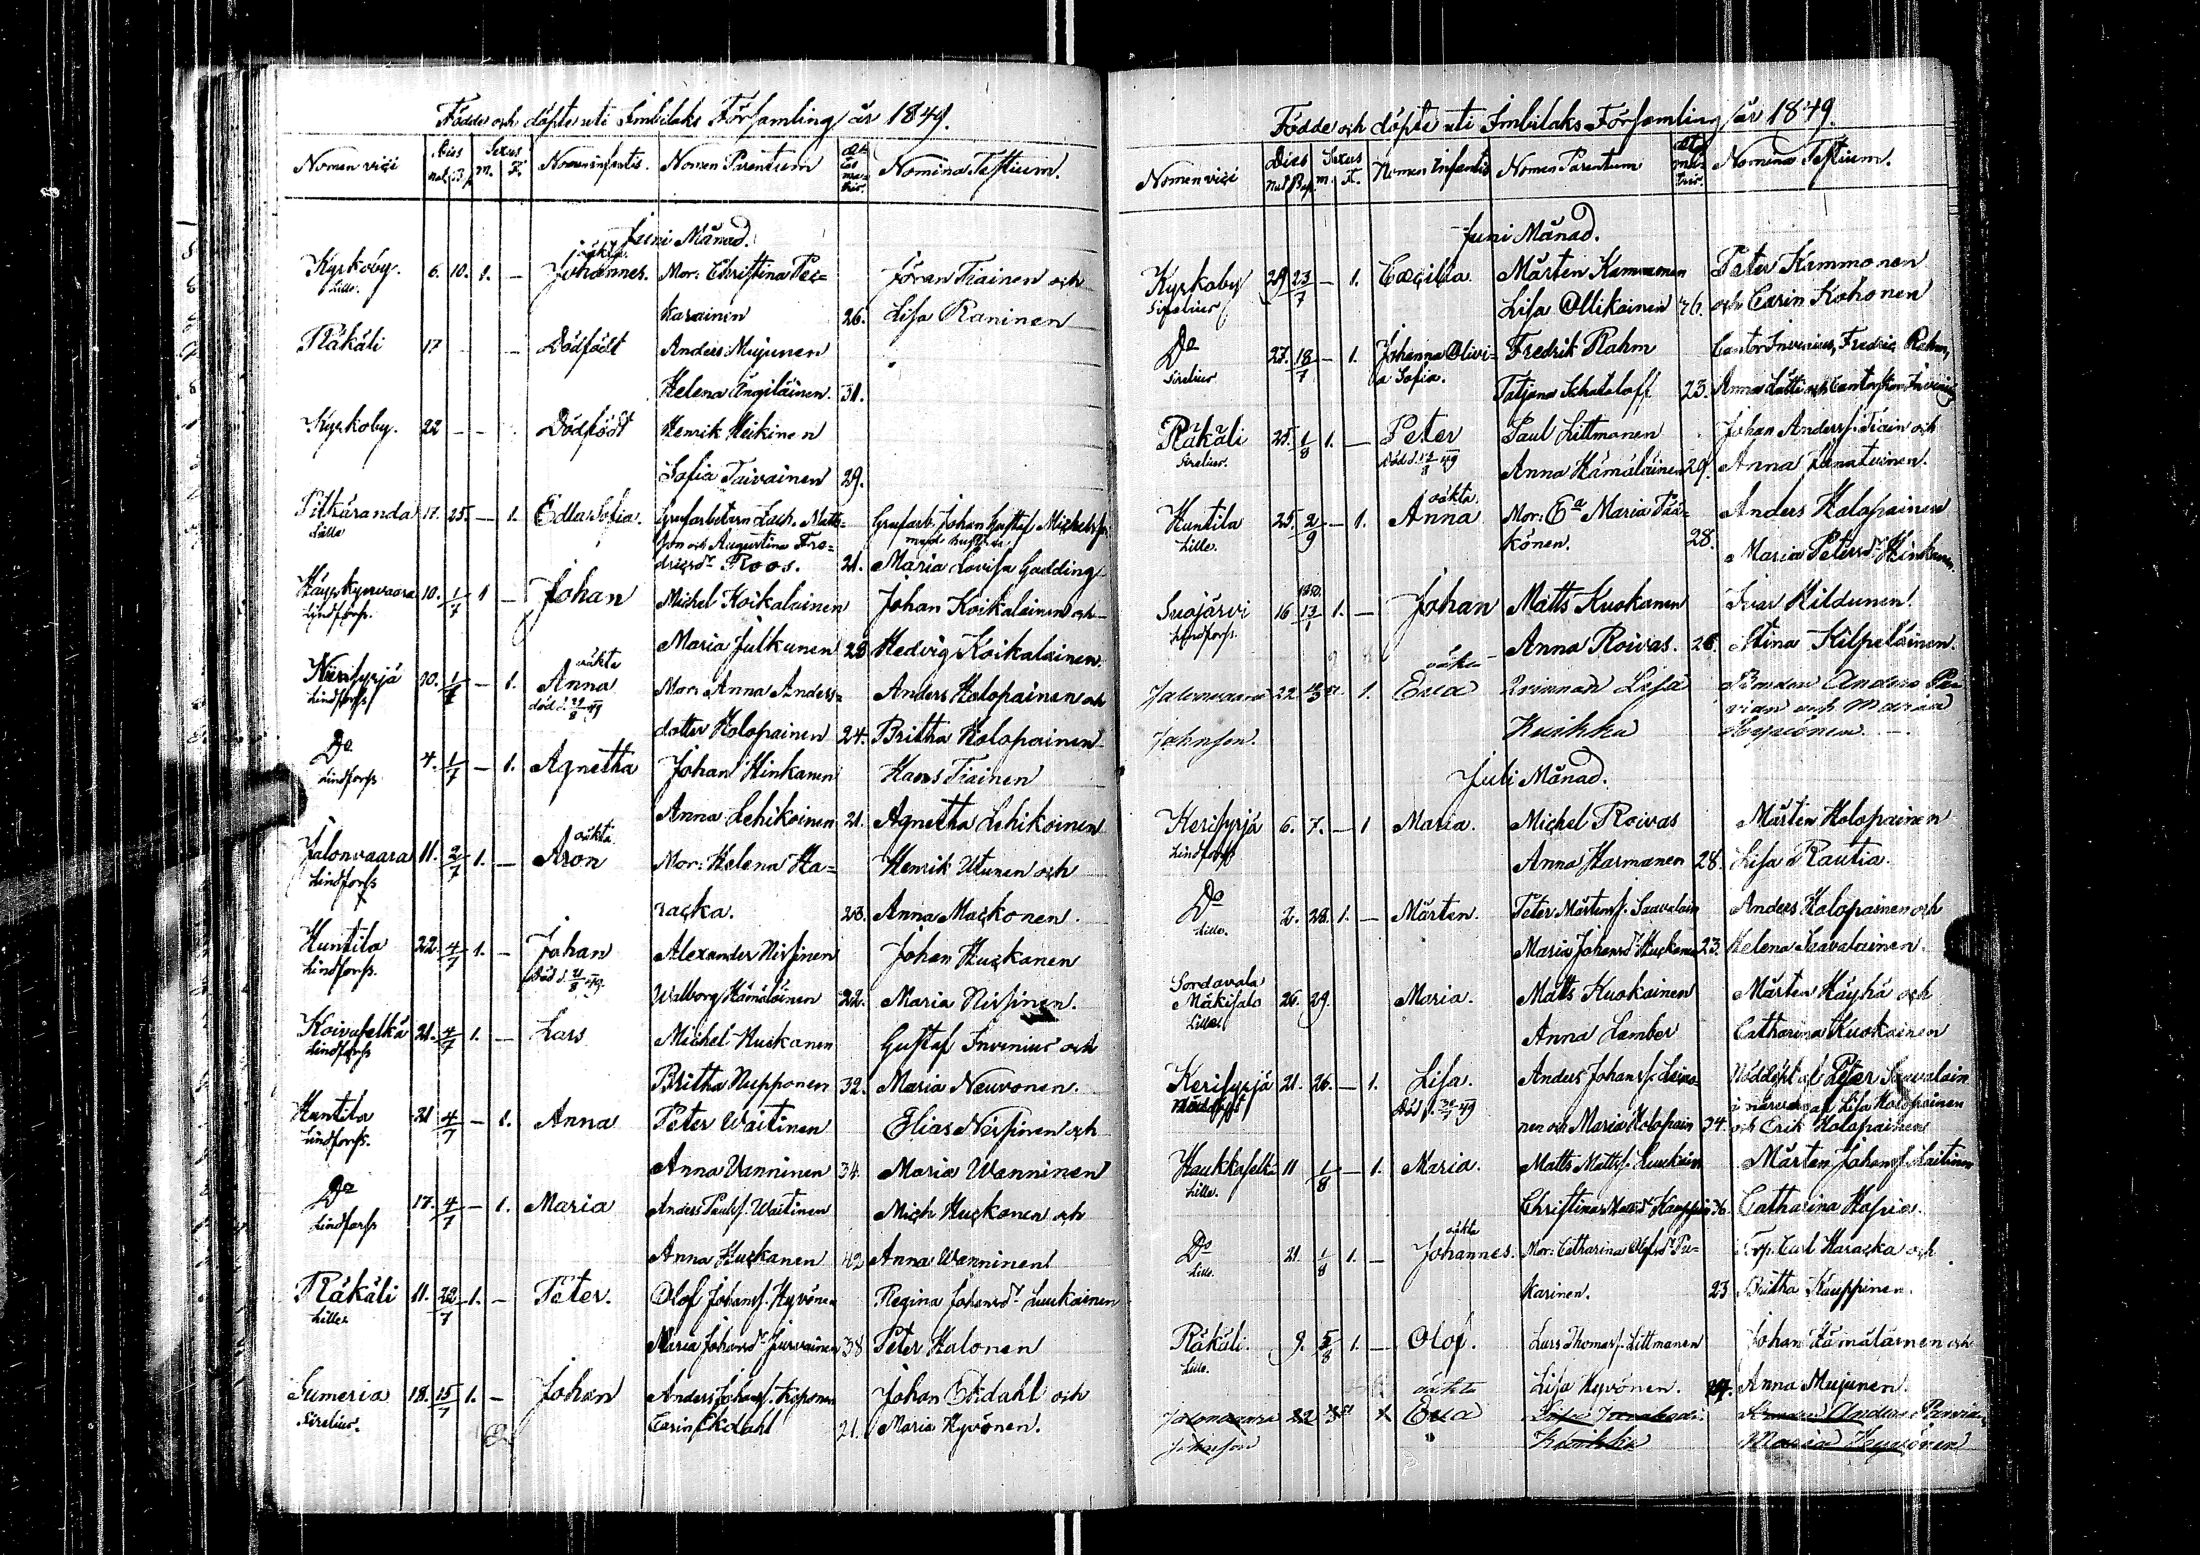 Födde och döpte uti Imbilaks Församling år 1849.
Nomen vici Dies Nat. B. Sexus M. F. Nomen infantis. Nomen Parentum Ætas matris. Nomina Testium.
Juni Månad.
oäkta
Kyrkoby. 6. 10. 1. – Johannes. Mor: Christina Pes= Jöran Tiainen och
Lille. karainen 26. Lisa Raninen
Räkäli 17 – – – Dödfödt Anders Mujunen
Helena Ängiläinen. 31.
Kyrkoby. 22 – – . Dödfödt Henrik Heikinen
Sofia Taivainen 29.
Pitkäranda 17. 25. – 1. Edla Sofia. Grufarbetaren Zach. Matts= Grufarb. Johan Gustaf Michelss.
Lille son och Augustina Fre= med hustru
dricsdr Roos. 21. Maria Lovisa Gadding
10. 1/7 1 – Johan Michel Koikalainen Johan Koikalainen och
Lindforss. Maria Julkunen 23 Hedvig Koikalainen.
oäkta
20. 1/7 – 1. Anna Mor: Anna Anders= Anders Holopainen och
Lindforss död d. 29/8 49 dotter Holopainen 24. Britha Holopainen
Do 4. 1/7 – 1. Agnetha Johan Hinkanen Hans Tiainen
Lindforss Anna Lehikoinen 21. Agnetha Lehikoinen
oäkta
Jalonvaara 11. 2/7 1. – Aron Mor: Helena Ha= Henrik Utunen och
Lindforss racka. 23. Anna Mackonen.
Huntila 22. 4/7 1. – Johan Alexander Nissinen Johan Huckanen
Lindforss. Död d. 21/8 49. Walborg Hämäläinen 22. Maria Nissinen.
Koivuselkä 21. 4/7 1. – Lars Michel Huckanen Gustaf Invenius och
Lindforss Britha Nupponen 32. Maria Neuvonen.
Huntila 21 4/7 – 1. Anna Peter Waitinen Elias Nissinen och
Lindforss. Anna Wanninen 34. Maria Wanninen
Do 17. 4/7 – 1. Maria Anders Paulss. Waitinen Mich Huckanen och
Lindforss Anna Huckanen 42 Anna Wanninen
Räkäli 11. 22/7 1. – Peter. Olof Johanss. Hyvönen Regina Johansdr Luukainen
Lille Maria Johansdr Jurvainen 38 Peter Halonen
Sumeria 18. 15/7 1. – Johan Anders Johanss. Johan Ekdahl och
Sirelius. Carin Ekdahl 21. Maria Hyvönen.
Födde och döpte uti Imbilaks Församling år 1849.
Nomen vici Dies Nat Bap. Sexus m. F. Nomen Infantis Nomen Parentum Æt. matris. Nomina Testium.
Juni Månad.
Kyrkoby 29 23/7 – 1. Cæcilia Mårten Kammonen Peter Kammonen
Sirelius Lisa Ollikainen 26. och Carin Kohonen
Do 27. 18/7 – 1. Johanna Olivi= Fredrik Rahm Cantor Invenius, Fredric Rahm,
Sirelius a Sofia. Tatjana Schataloff 23.
Räkäli 25. 1/8 1. – Peter Paul Littmanen Johan Anderss. Tiain och
Sirelius. Död d. 12/8 49 Anna Hämäläinen 29. Anna
oäkta
Huntila 25. 2/9 – 1. Anna Mor: Ea Maria Pää= Anders Holopainen
Lille. könen. 28. Maria Petersdr Hinkanen.
1850.
Suojärvi 16 13/1 1. – Johan Matts Kuokanen Ivar Hildunen.
Lindforss. Anna Roivas. 26. Stina Kilpeläinen.
oäkta
Jalonvaara 22 1. Eva Lisa Anders
Johnsson. Kuikka
Juli Månad.
Kerisyrjä 6. 7. – 1 Maria. Michel Roivas Mårten Holopainen
Lindforss Anna Harmanen 28. Lisa Rautia.
Do 2. 28. 1. – Mårten. Peter Mårtenss. Saavalain Anders Holopainen och
Lille. Maria Johansdr Huckanen 23. Helena Saavalainen.
Sordavala
Mäkisalo 26. 29. Maria. Matts Kuokainen Mårten Häyhä och
Lille Anna Lember Catharina Kuokainen
Kerisyrjä 21. 26. – 1. Lisa. Anders Johanss. Leino= Nöddöpt af Peter Saavalain
Död nen och Maria Holopain 34. i närvaro af Lisa Holopainen
och Erik Holopainen
Haukkaselkä 11 1/8 – 1. Maria. Matts Mattss. Luukain Mårten Johanss. Laitinen
Lille. Christina Kauppin 36. Catharina
oäkta
Do 21. 1/8 1. – Johannes. Mor: Catharina Olofsdr Pu= Torp. Carl Haracka och
Lille. karinen. 23 Britha Kauppinen.
Räkäli. 9. 5/8 1. – Olof. Lars Thomass. Littmanen Johan Hämäläinen och
Lille. Lisa Hyvönen. 27. Anna Mujunen.
oäkta
Jalonvaara 22 Eva Anders Parvia
Johnsson Kuikka Maria Hyvönen